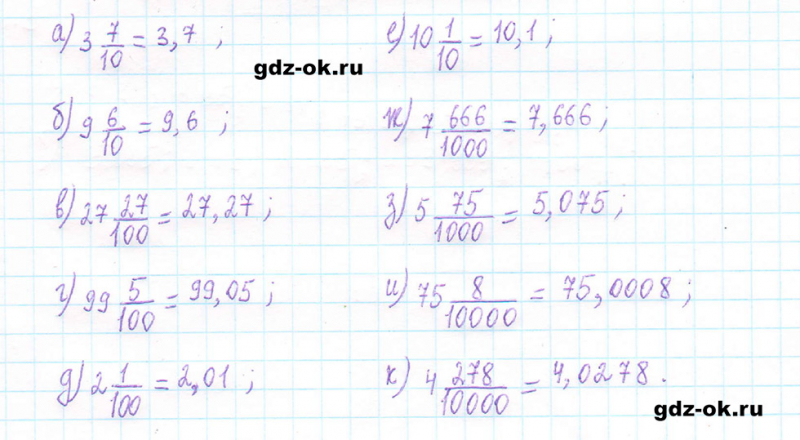 а) 3 7/10 = 3,7 ;
б) 9 6/10 = 9,6 ;
в) 27 27/100 = 27,27 ;
г) 99 5/100 = 99,05 ;
д) 2 1/100 = 2,01 ;
е) 10 1/10 = 10,1 ;
gdz-ok.ru
ж) 7 666/1000 = 7,666 ;
з) 5 75/1000 = 5,075 ;
и) 75 8/10000 = 75,0008 ;
к) 4 278/10000 = 4,0278 .
gdz-ok.ru